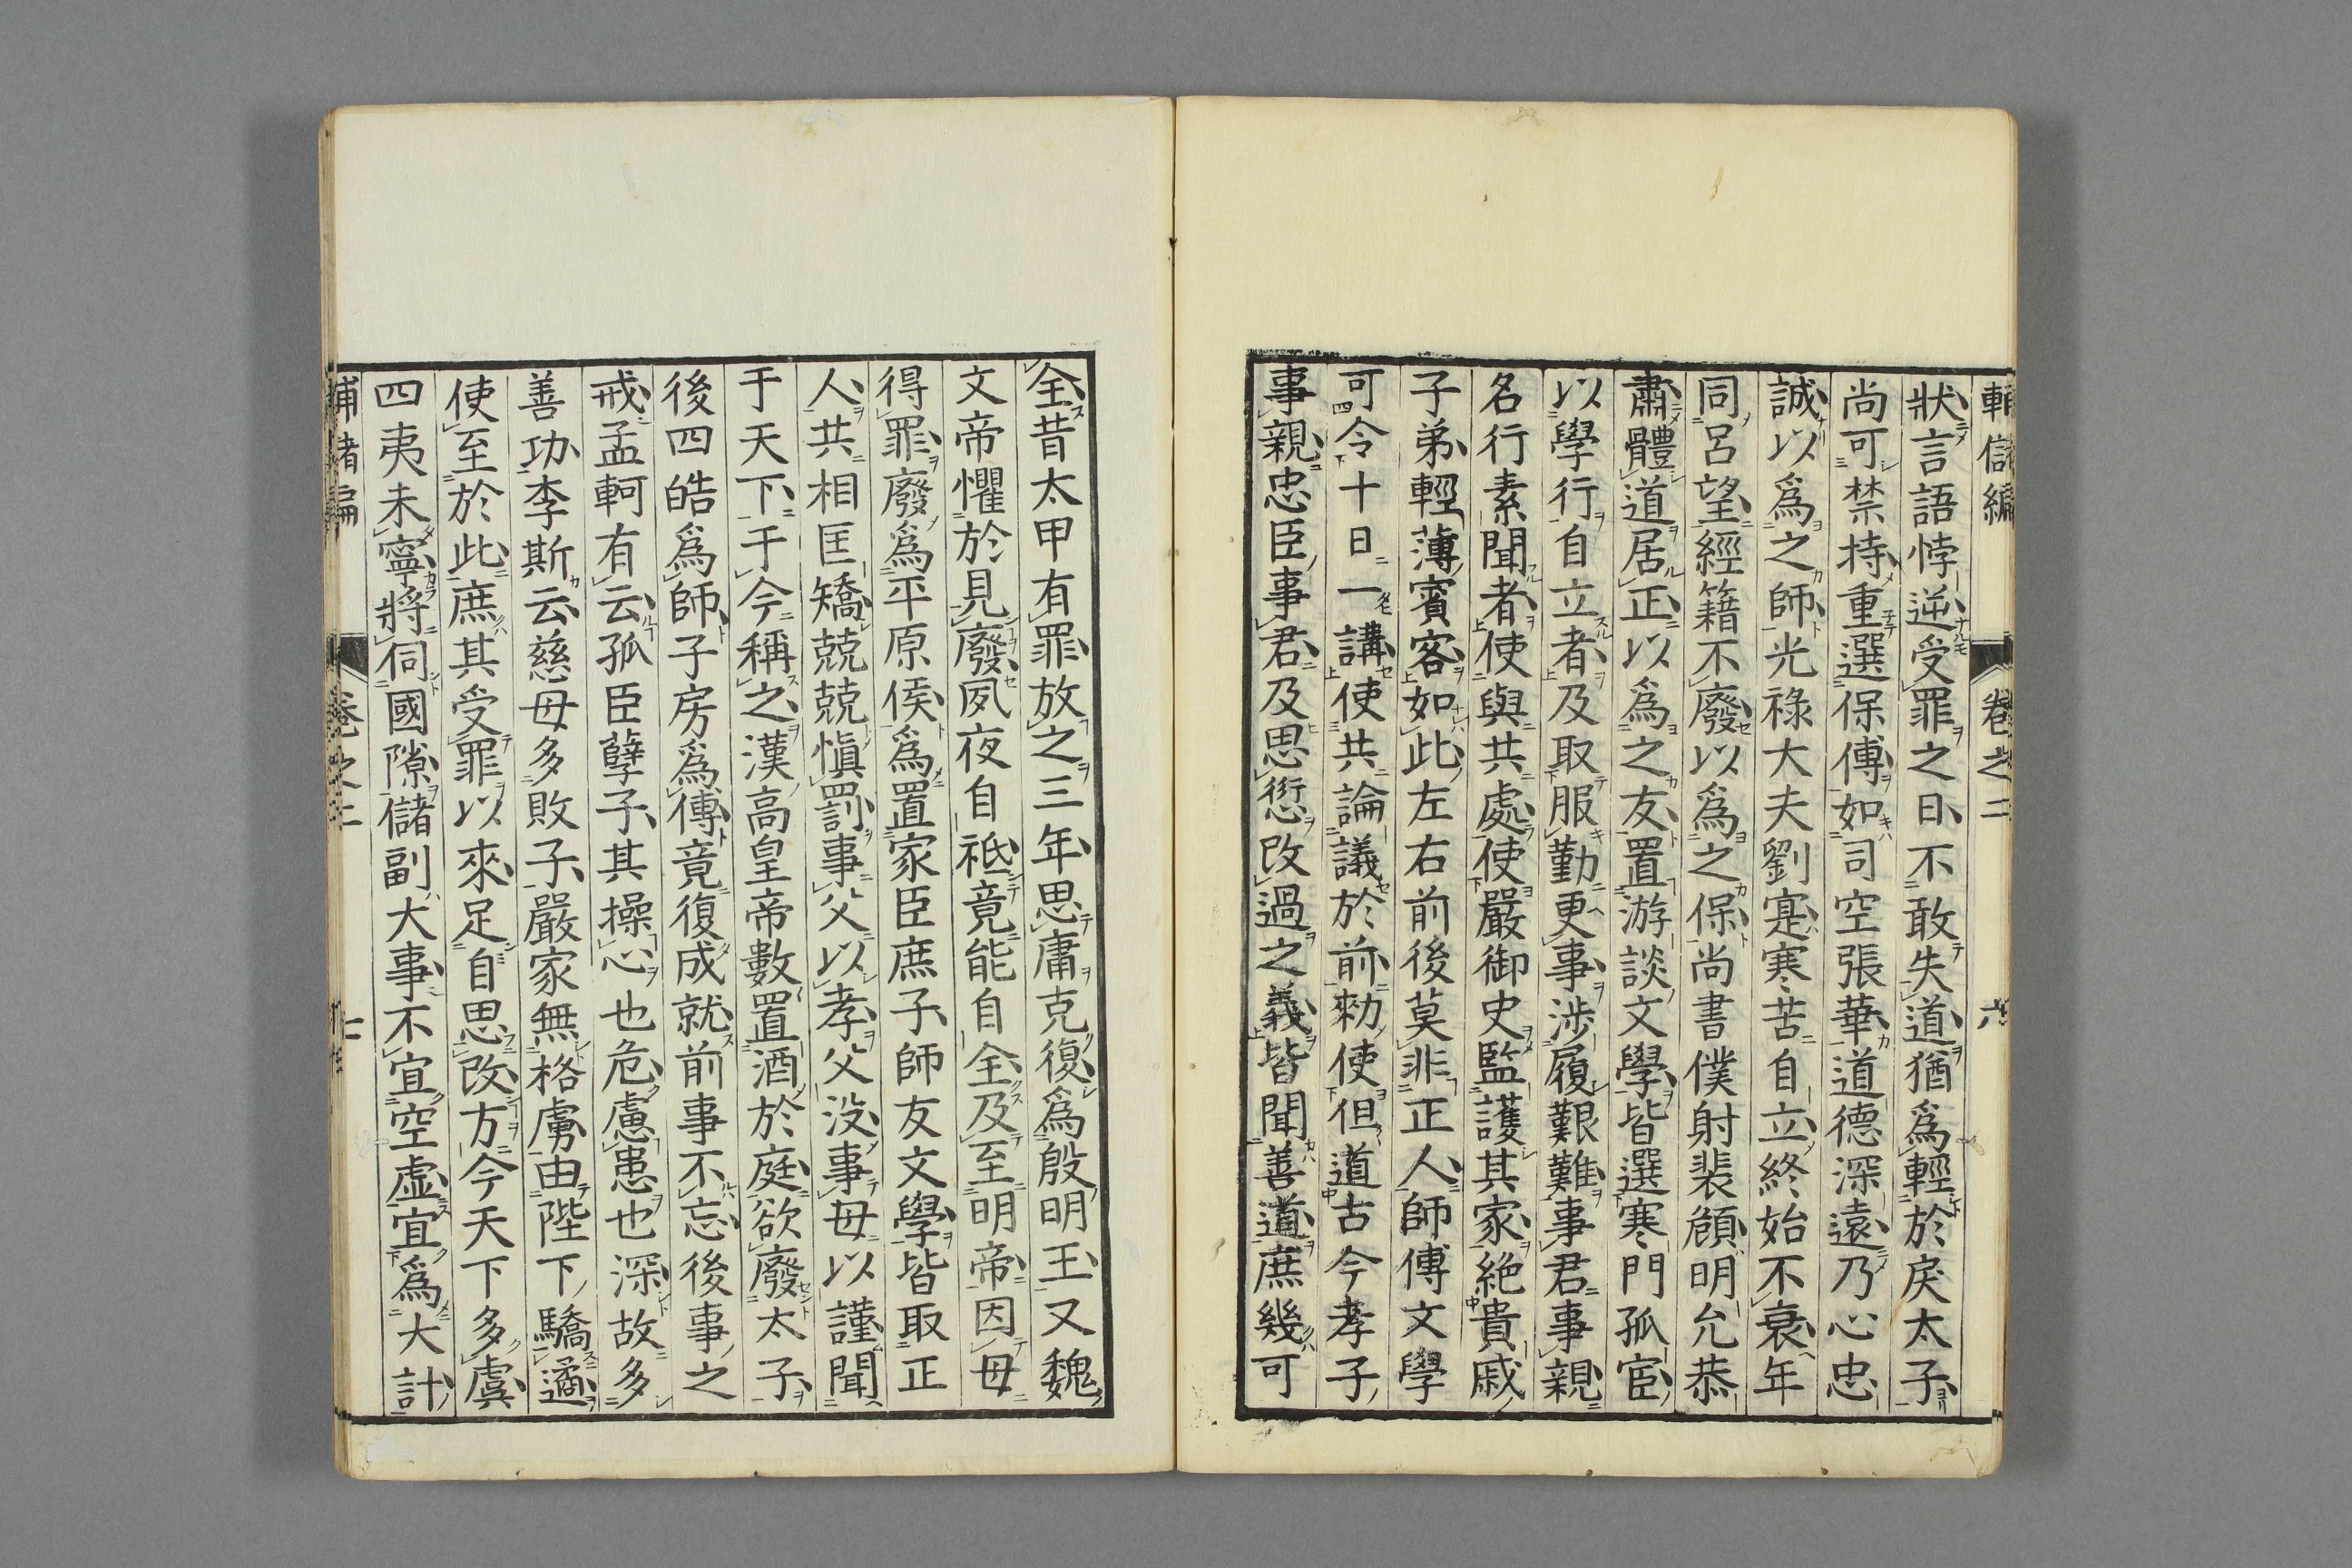 輔儲編 卷之二 六
狀言語悖逆受罪之日不敢失道猶爲輕於戾太子
尚可禁持重選保傅如司空張華道德深遠乃心忠
誠以爲之師光祿大夫劉寔寒苦自立終始不衰年
同呂望經籍不廢以爲之保尚書僕射裴頠明允恭
肅體道居正以爲之友置游談文學皆選寒門孤宦
以學行自立者及取服勤更事涉履艱難事君事親
名行素聞者使與共處使嚴御史監護其家絕貴戚
子弟輕薄賓客如此左右前後莫非正人師傅文學
可令十日一講使共論議於前勑使但道古今孝子
事親忠臣事君及思愆改過之義皆聞善道庶幾可
全昔太甲有罪放之三年思庸克復爲殷明王又魏
文帝懼於見廢夙夜自祗竟能自全及至明帝因母
得罪廢爲平原侯爲置家臣庶子師友文學皆取正
人共相匡矯兢兢愼罰事父以孝父沒事母以謹聞
于天下于今稱之漢高皇帝數置酒於庭欲廢太子
後四皓爲師子房爲傅竟復成就前事不忘後事之
戒孟軻有云孤臣孽子其操心也危慮患也深故多
善功李斯云慈母多敗子嚴家無格虜由陛下驕遹
使至於此庶其受罪以來足自思改方今天下多虞
四夷未寧將伺國隙儲副大事不宜空虛宜爲大計
輔儲編 卷之二